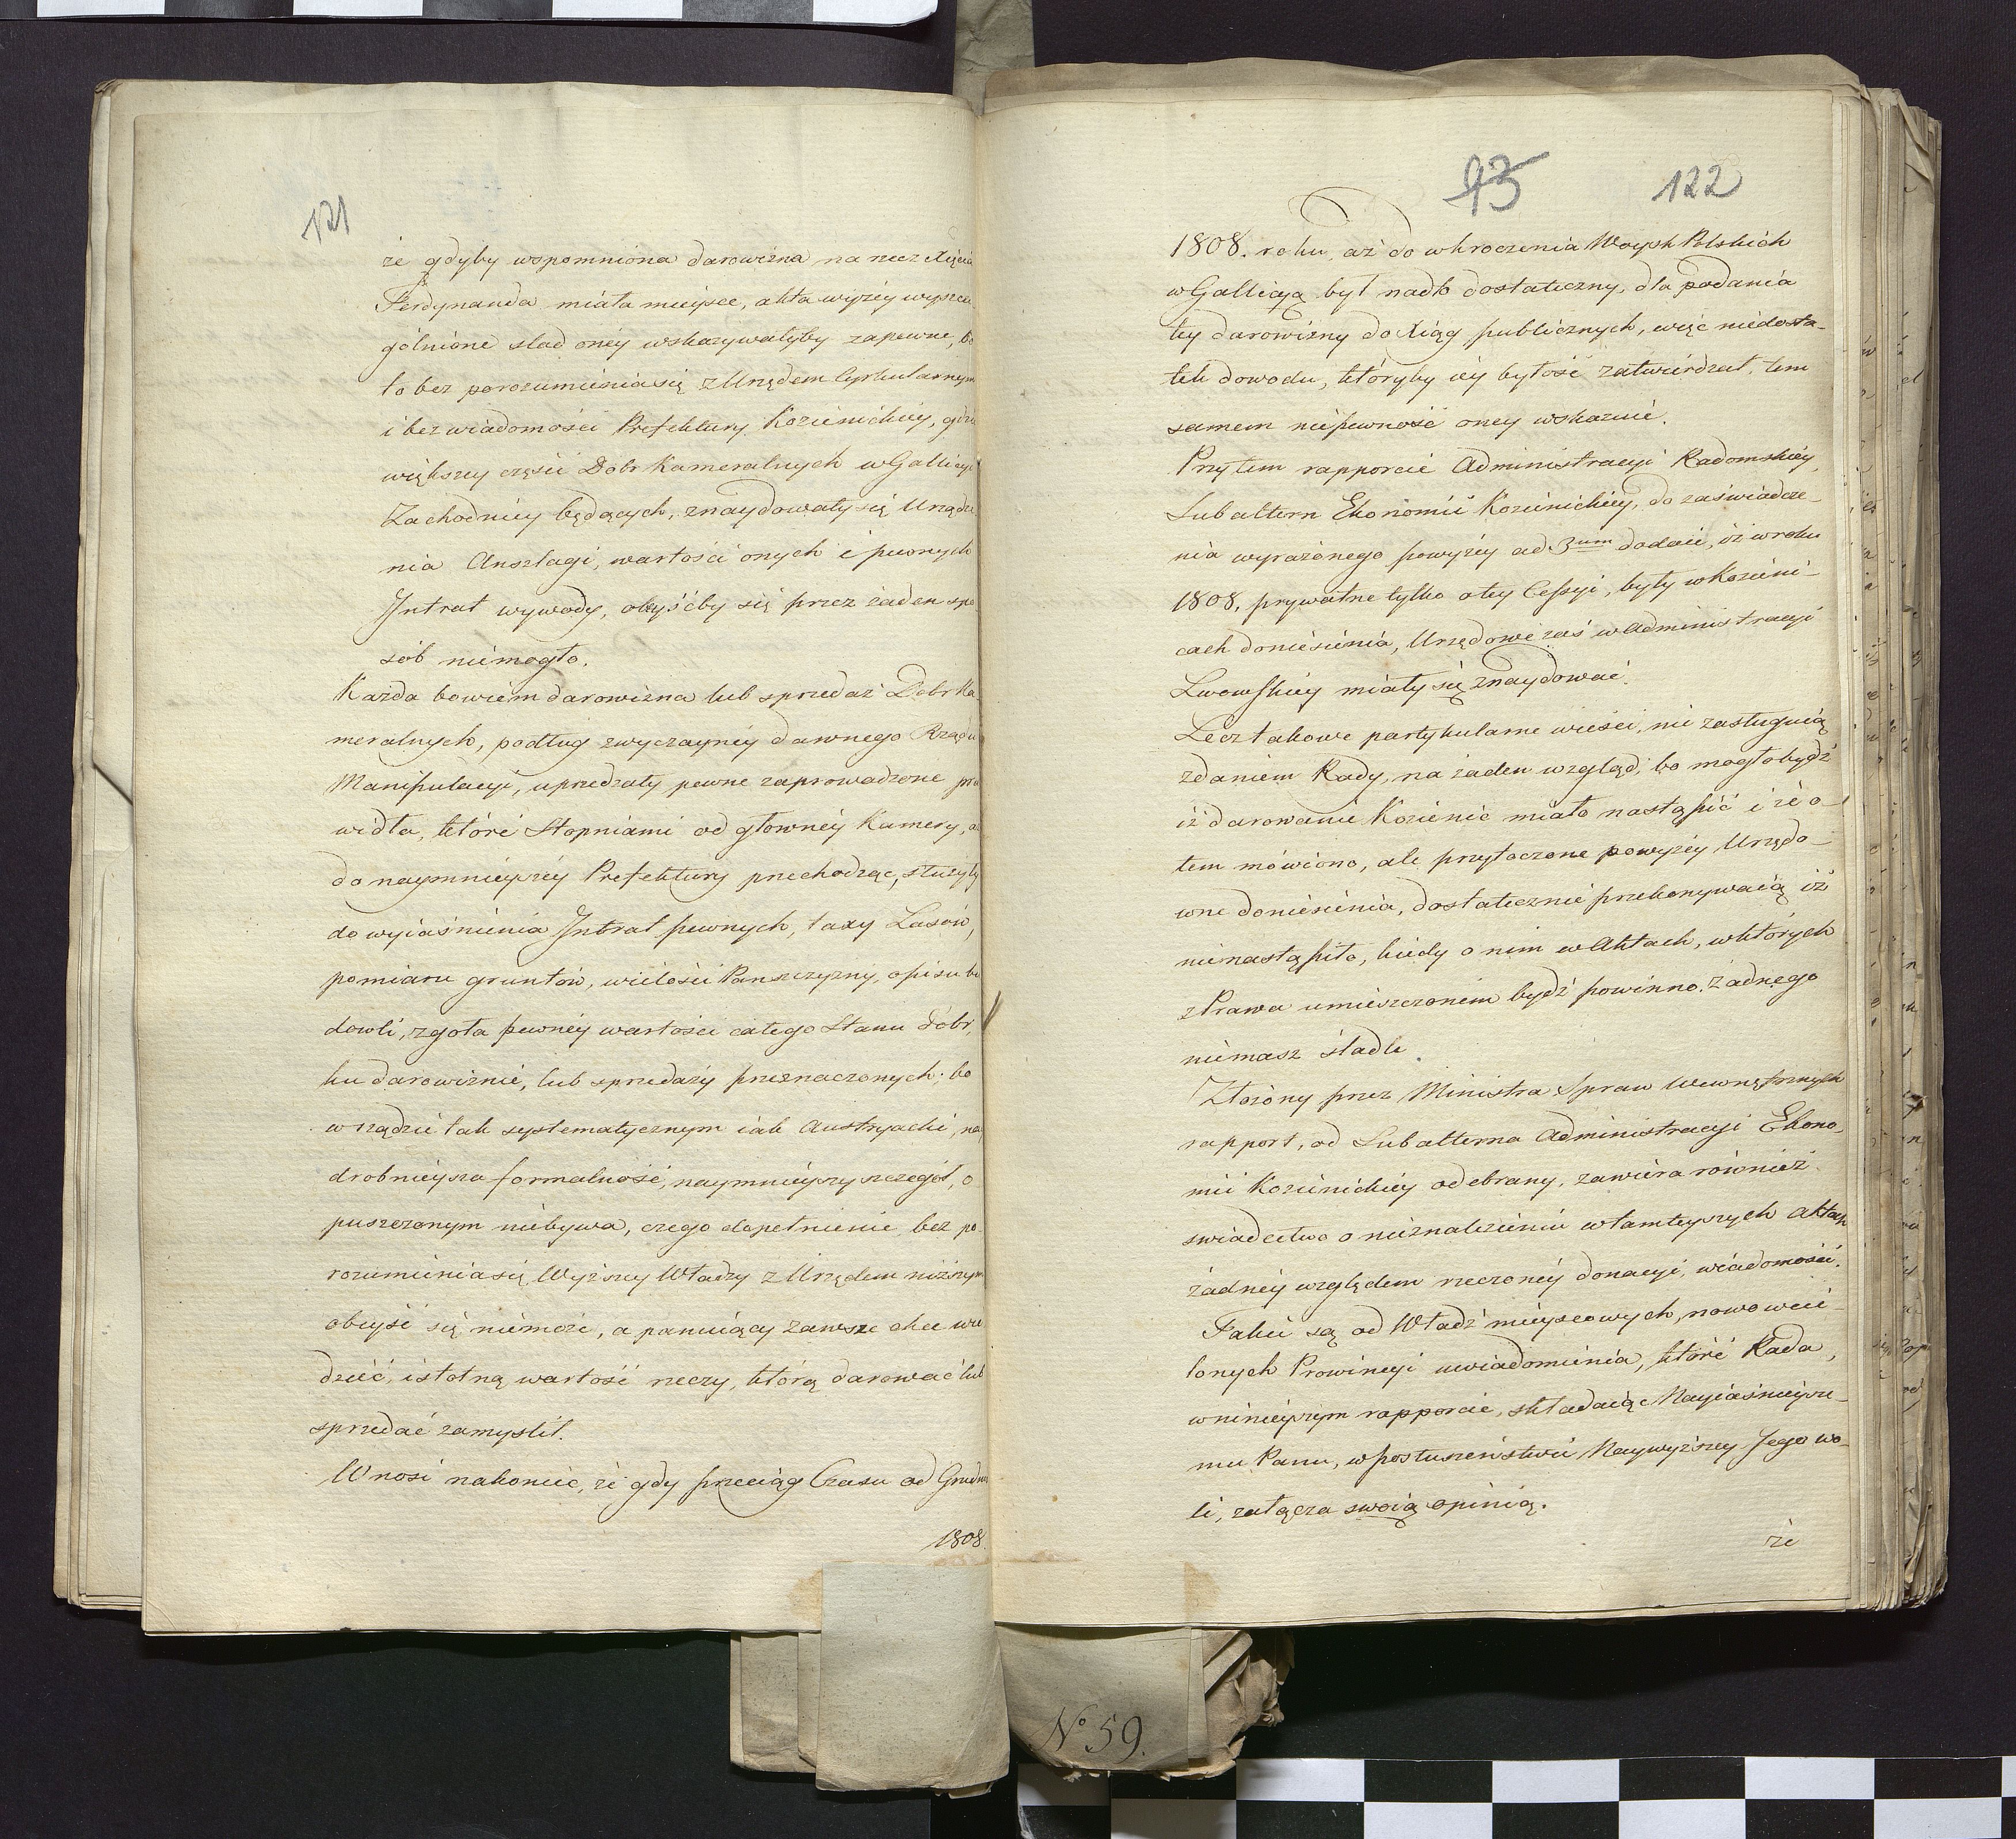 121
że gdyby wspomniona darowizna na rzecz Xięcia
Ferdynanda miała mieysce, akta wyżéy wyszcze
gólnione slad onéy wskazywałyby zapewne, bo
to bez porozumienia się z Urzędem Cyrkularnym
i bez wiadomości Prefektury Kozienickiey, gdzie
większey części Dobr Kameralnych w Gallicyi
Zachodniey będących, znaydowały się Urządze
nia Anszlagi, wartości onych i pewnych
Intrat wywody, obeyśćby się przez żaden spo
sób niemogło.
Każda bowiem darowizna lub sprzedaż Dobr Ka
meralnych, podług zwyczayney dawnego Rządu
Manipulacyi, uprzedzały pewne zaprowadzone pra
widła, które Stopniami od głowney Kamery, aż
do naymnieyszéy Prefektury przechodząc, służyły
do wyiaśnienia Intrat pewnych, taxy Lasów,
pomiaru gruntów, wielości Panszczyzny, opisu bu
dowli, zgoła pewnéy wartości całego Stanu Dobr,
ku darowiznie, lub sprzedaży przeznaczonych; bo
w rządzie tak systematycznym iak Austryacki, nay
drobnieysza formalność, naymnieyszy szczegół, o
puszczonym niebywa, czego dopełnienie bez po
rozumienia się Wyższey Władzy z Urzędem niższym
obeyść się niemoże, a panuiący zawsze chce wie
dzieć, istotną wartość rzeczy, którą darować lub
sprzedać zamyslił.
Wnosi nakoniec, że gdy przeciąg Czasu od Grudnia
1808.
93 122
1808. roku, aż do wkroczenia Woysk Polskich
w Gallicyą był nadto dostateczny, dla podania
tey darowizny do Xiąg publicznych, więc niedosta-
tek dowodu, któryby iey bytość zatwierdzał, tem
samem niepewność oney wskazuie.
Przy tem rapporcie Administracyi Radomskiey,
Subaltern Ekonomii Kozienickiéy, do zaświadcze-
nia wyrażonego powyżéy ad 3um dodaie, iż w roku
1808, prywatne tylko o tey Cessyi, były w Kozieni-
cach doniesienia, Urzędowe zaś w Administracyi
Lwowskiey miały się znaydować.
Lecz takowe partykularne wieści, nie zasługuią
zdaniem Rady, na żaden wzgląd, bo mogło bydź
iż darowanie Kozienic miało nastąpić i że o
tem mówiono, ale przytoczone powyżéy Urzędo-
wne doniesienia, dostatecznie przekonywaią iż
nienastąpiło, kiedy o nim w Aktach, w których
z Prawa umieszczonem bydź powinno, żadnego
niemasz śladu.
Złożony przez Ministra Spraw Wewnętrznych
rapport, od Subalterna Administracyi Ekono-
mii Kozienickiéy odebrany, zawiera również
swiadectwo o nieznalezieniu w tamteyszych aktach
żadnéy względem rzeczonéy donacyi, wiadomości.
Takie są od Władz mieyscowych, nowo wcie-
lonych Prowincyi uwiadomienia, które Rada,
w ninieyszym rapporcie, składaiąc Nayiaśnieysze-
mu Panu, w posłuszeństwie Naywyższey Jego wo-
li, załącza swoią opinią.
że
No 59.